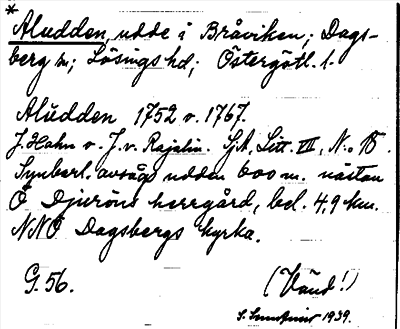 *
Aludden, udde i Bråviken; Dags-
berg sn; Lösings hd; Östergötl. l.
Aludden 1752 v. 1767.
J. Hahn v. J. v. Rajalin. Sj.A. Litt. VII, No 15.
Synberl. avsågs udden 600 m. nästan
Ö Djuröns herrgård, bel. 4,9 km.
NNO Dagsbergs kyrka.
G. 56.
(Vänd!)
S. 1939.